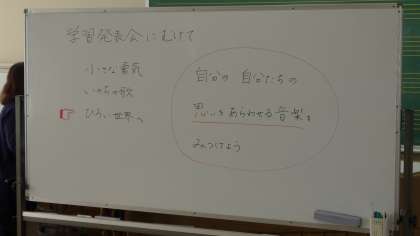 学習発表会にむけて
小さな勇気
いのちの歌
ひろい世界へ
自分の 自分たちの
思いをあらわせる音楽を
みつけよう